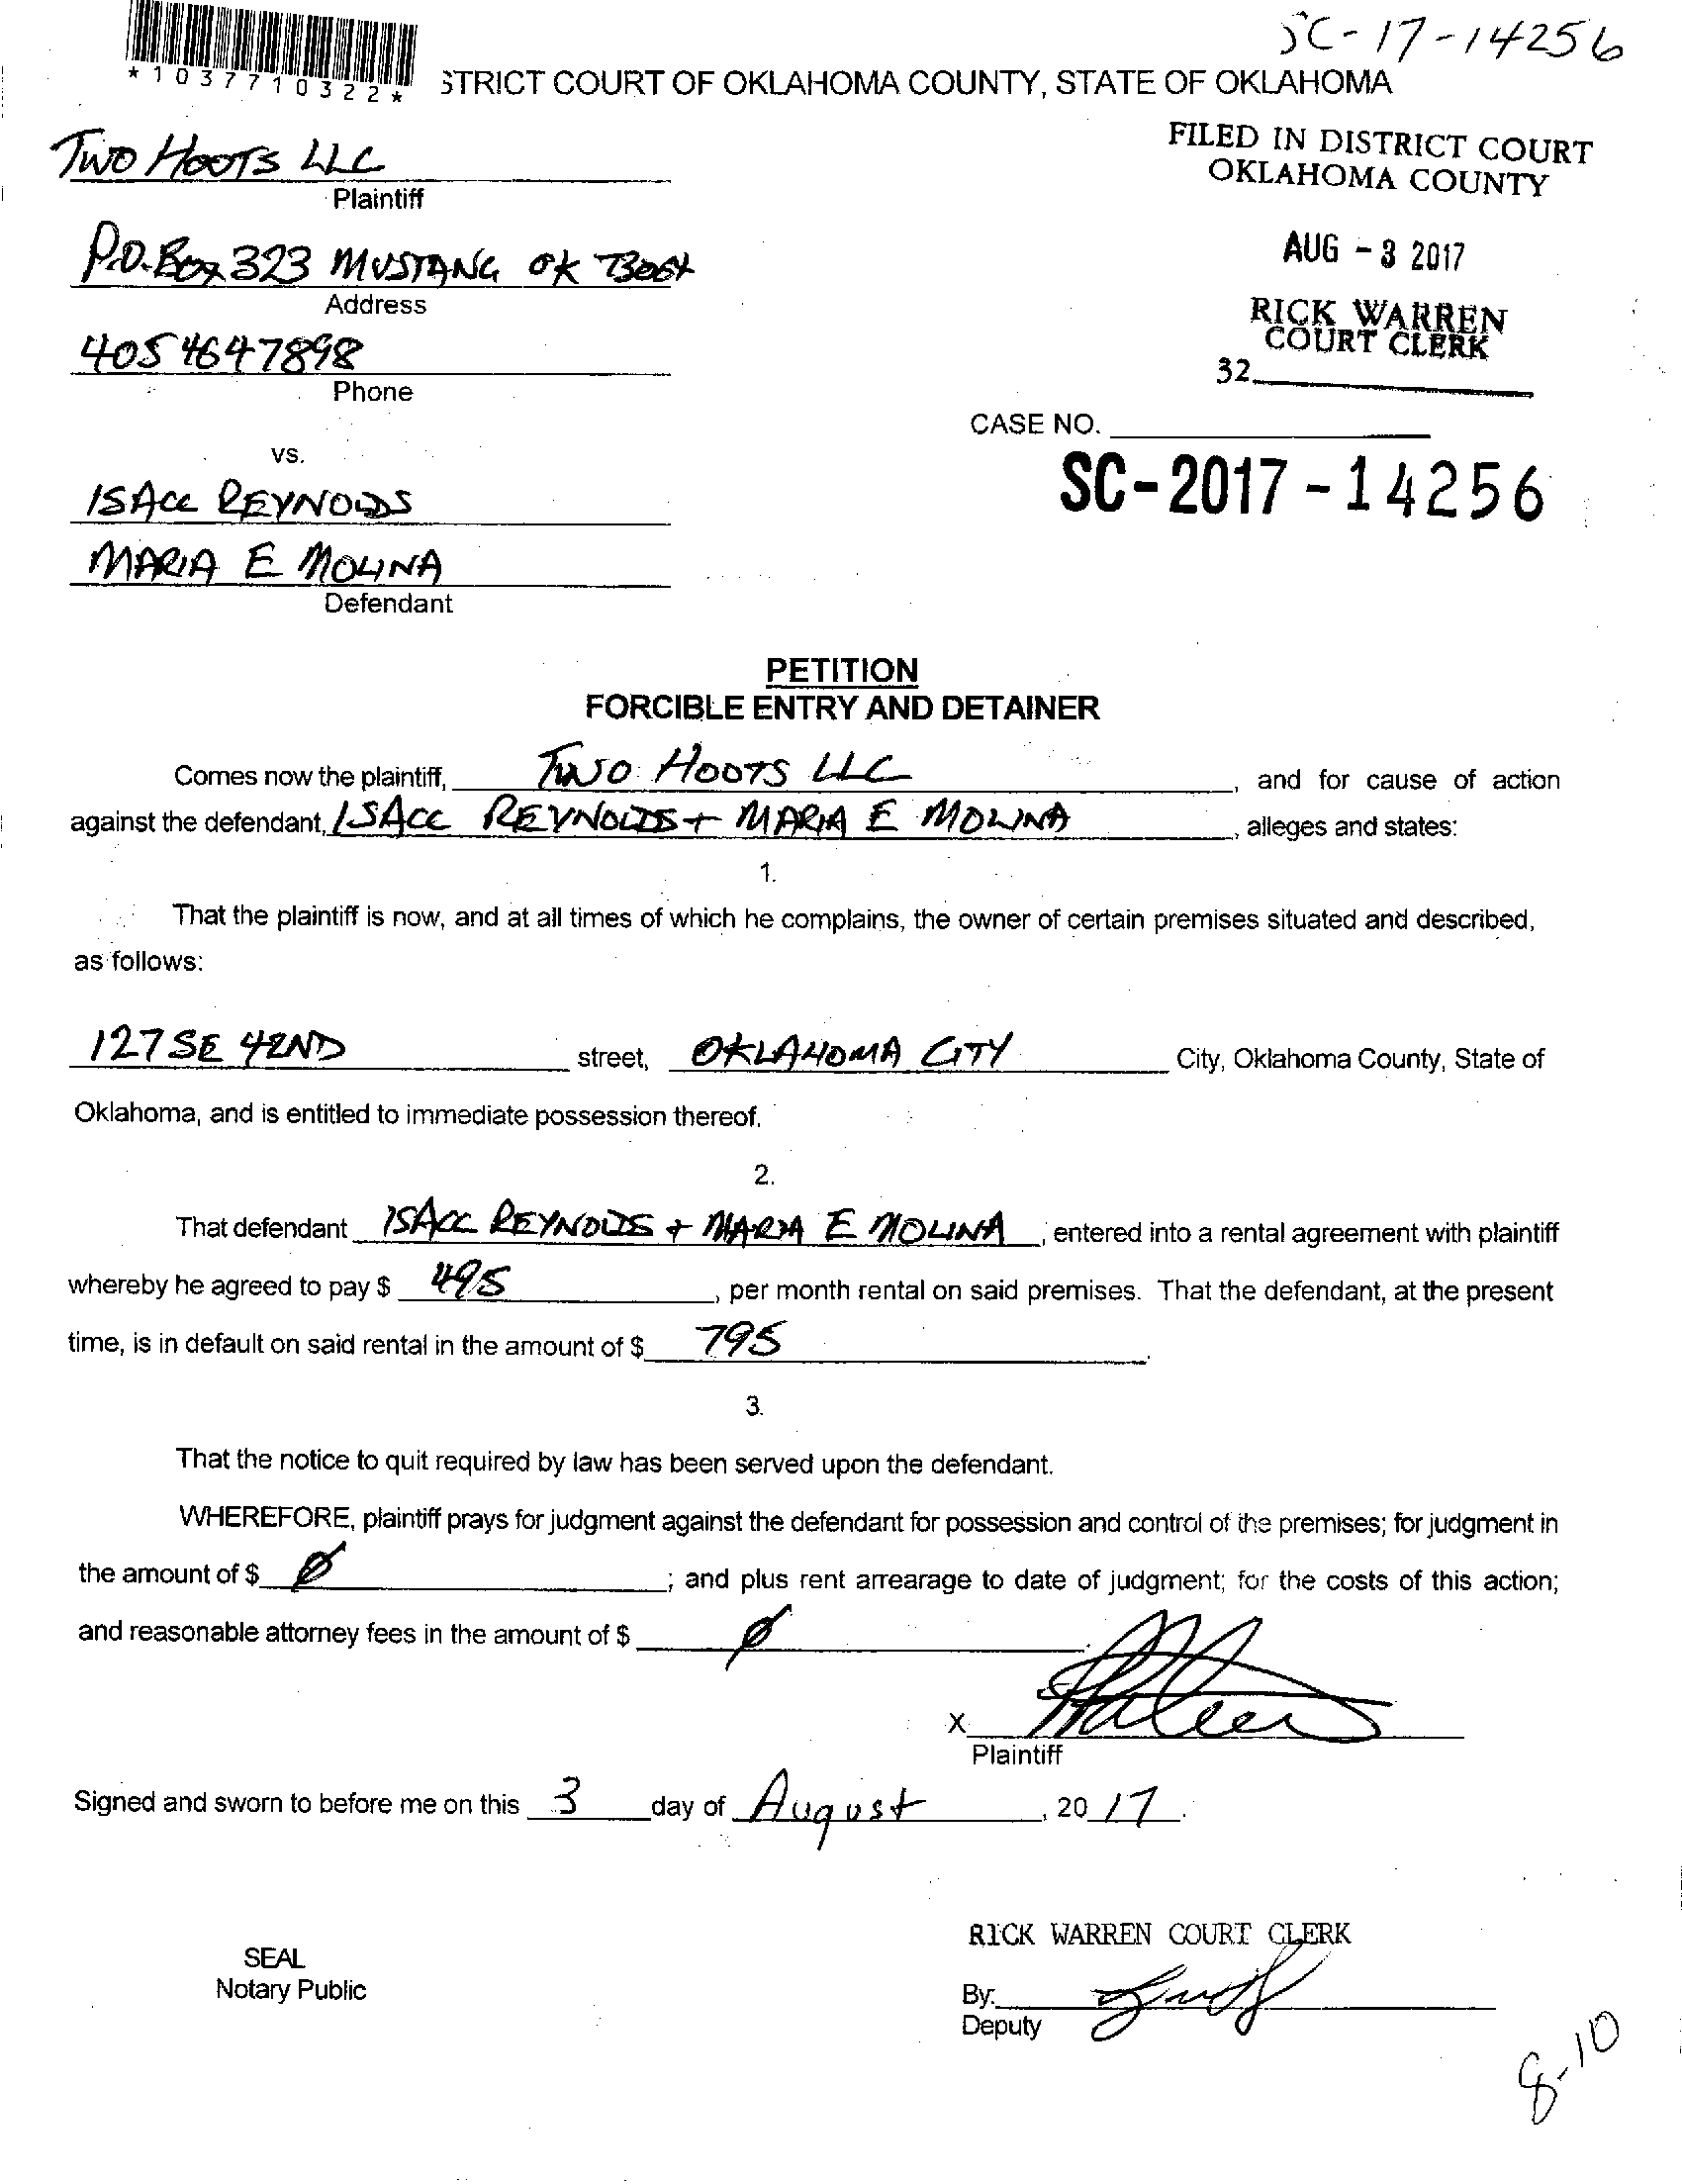 SC-17-14256
*1037710322*
STRICT COURT OF OKLAHOMA COUNTY, STATE OF OKLAHOMA
TWO HOOTS LLC
Plaintiff
FILED IN DISTRICT COURT
OKLAHOMA COUNTY
P.O. Box 323 MUSTANG OK
Address
AUG - 3 2017
405 4647898
Phone
RICK WARREN
COURT CLERK
32
CASE NO.
SC-2017-14256
vs.
ISACC REYNOLDS
MARIA E MOLINA
Defendant
PETITION
FORCIBLE ENTRY AND DETAINER
Comes now the plaintiff, TWO HOOTS LLC, and for cause of action
against the defendant, ISACC REYNOLDS + MARIA E MOLINA, alleges and states:
1.
That the plaintiff is now, and at all times of which he complains, the owner of certain premises situated and described,
as follows:
127 SE 42ND street, OKLAHOMA CITY City, Oklahoma County, State of
Oklahoma, and is entitled to immediate possession thereof.
2.
That defendant ISACC REYNOLDS + MARIA E MOLINA, entered into a rental agreement with plaintiff
whereby he agreed to pay $ 495, per month rental on said premises. That the defendant, at the present
time, is in default on said rental in the amount of $ 795.
3.
That the notice to quit required by law has been served upon the defendant.
WHEREFORE, plaintiff prays for judgment against the defendant for possession and control of the premises; for judgment in
the amount of $ Ø; and plus rent arrearage to date of judgment; for the costs of this action;
and reasonable attorney fees in the amount of $ Ø.
X
Plaintiff
Signed and sworn to before me on this 3 day of August, 20 17.
RICK WARREN COURT CLERK
SEAL
Notary Public
By:
Deputy
8-10